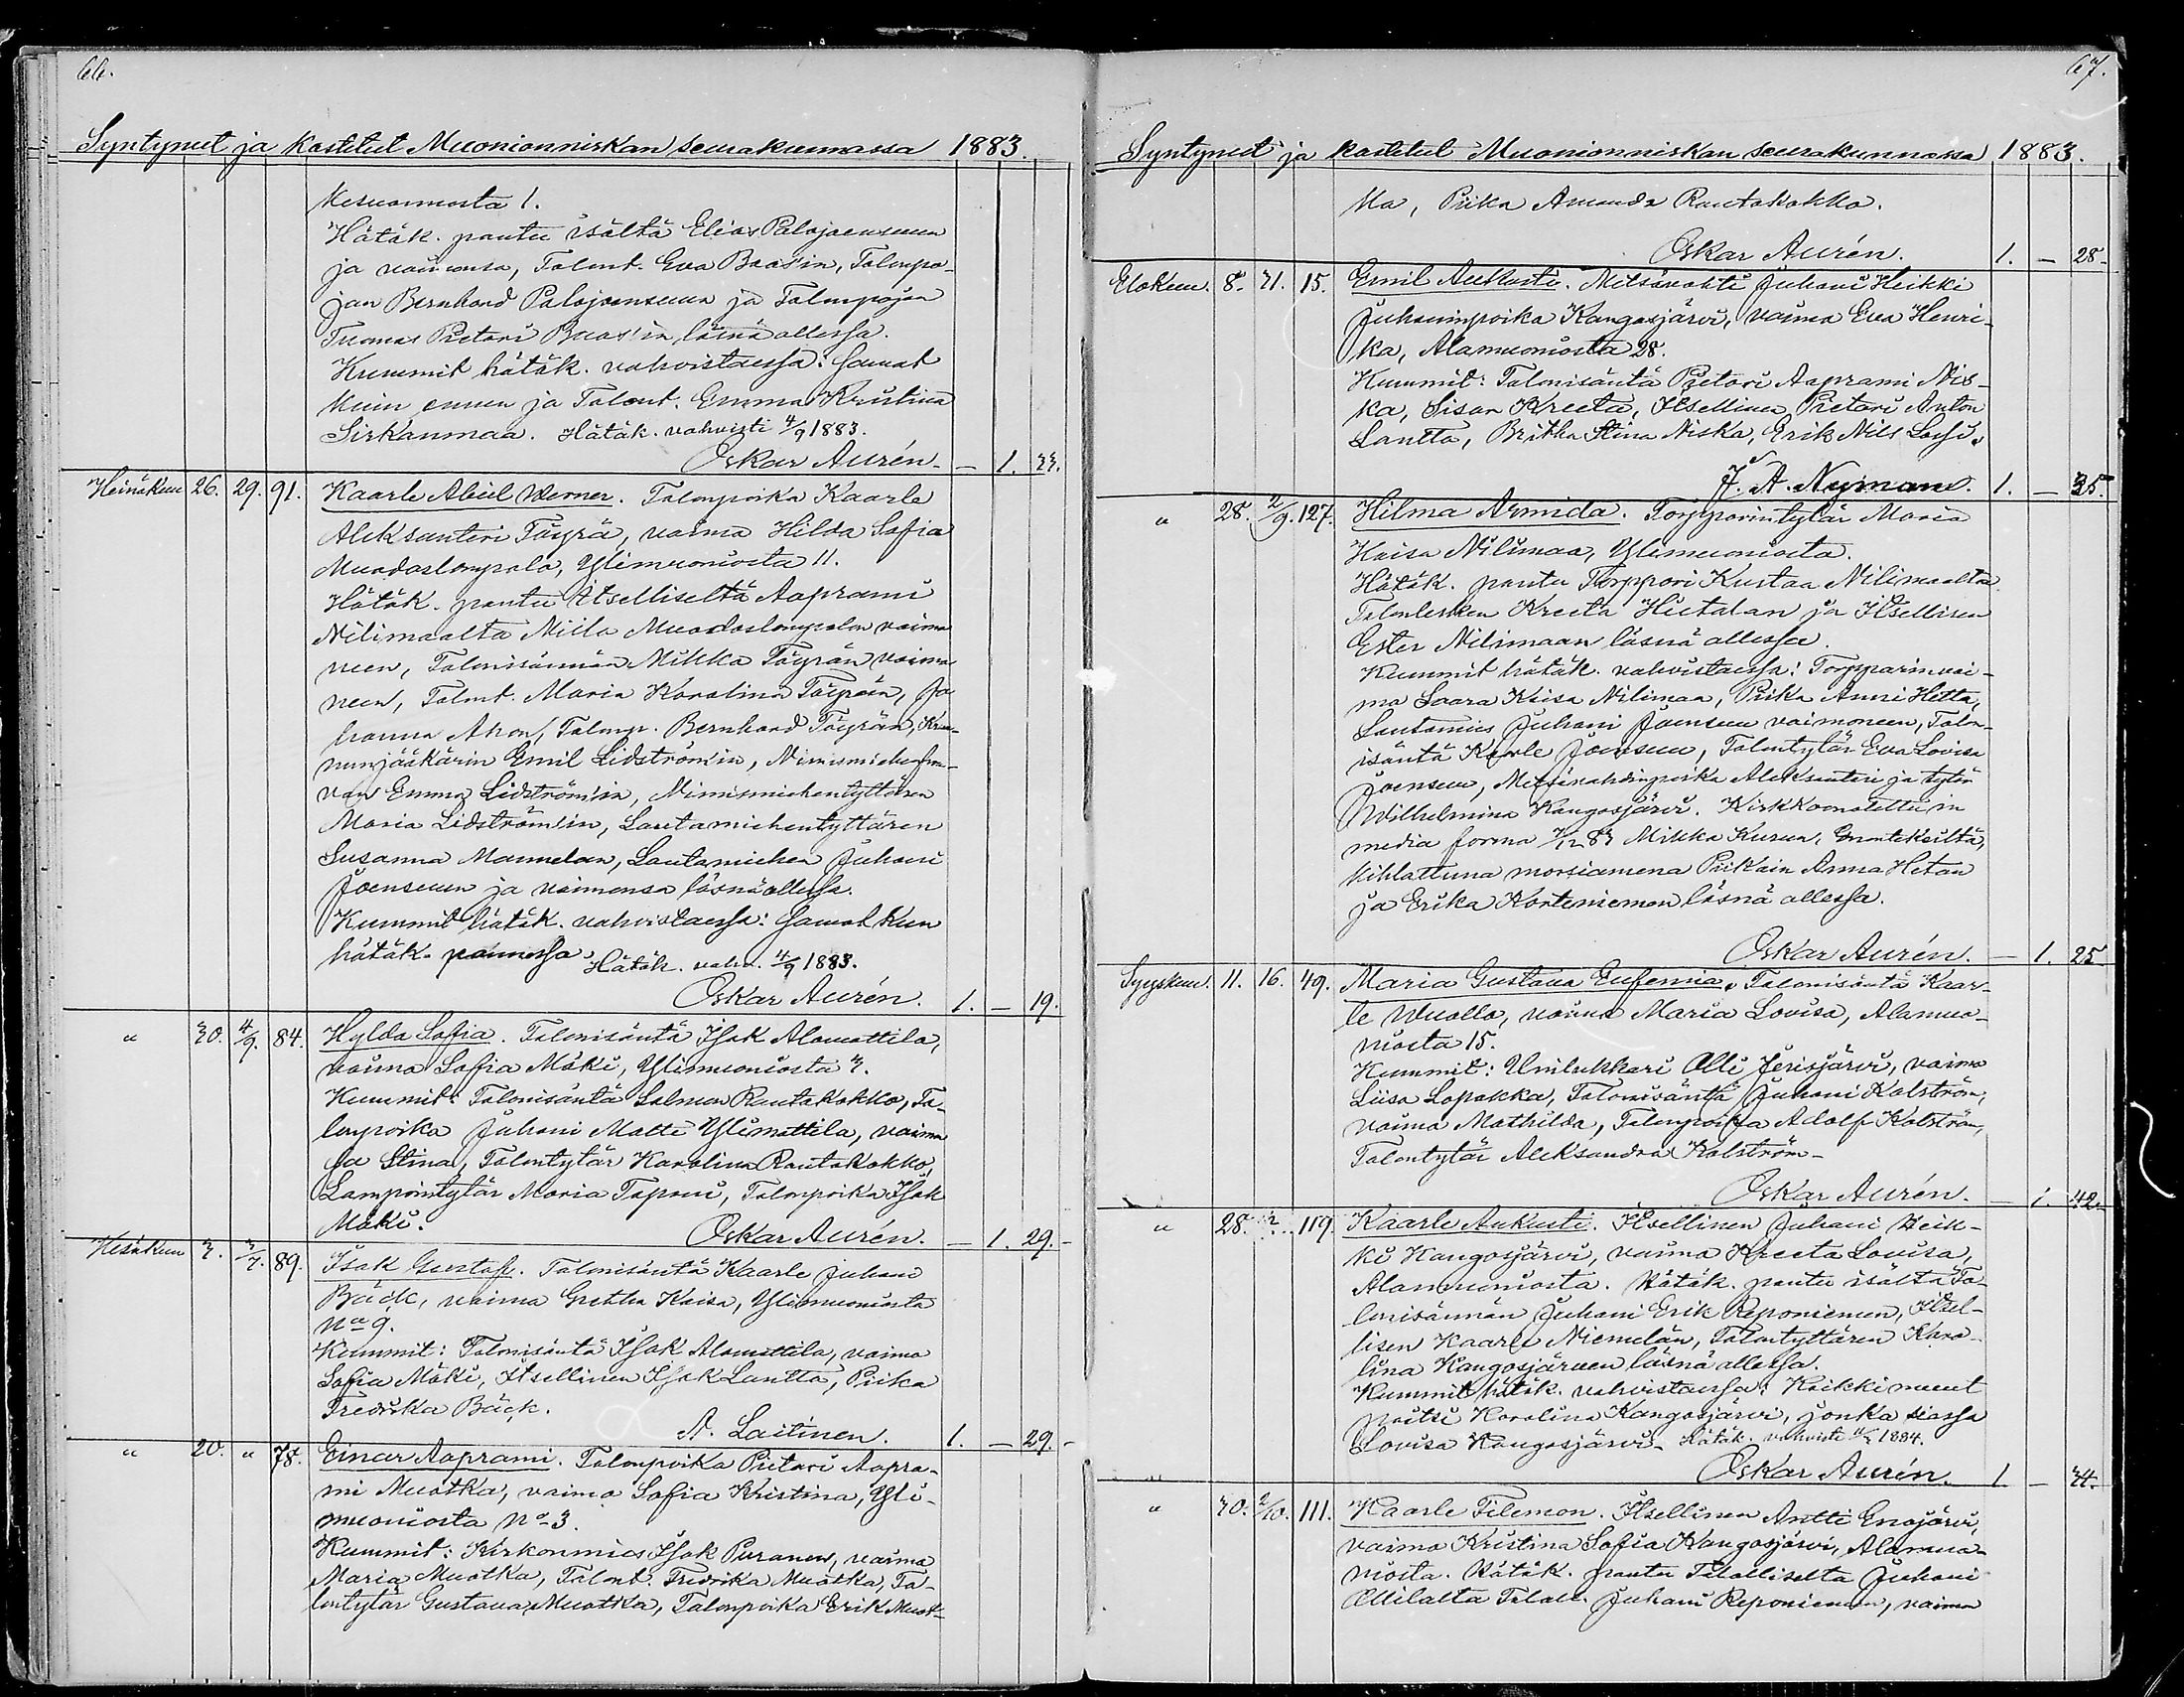 66.
Syntynut ja kastetut Muonionniskan seurakunnassa 1883.
Kesuonnosta 1.
Hätäk. pantu isältä Elias Palojoensuun
ja vaimonsa, Talont. Eva Baas'in, Talonpo-
jan Bernhard Palojoensuun ja Talonpojan
Tuomas Pietari Baas'in läsnä ollessa.
Kummit hätäk. vahvistaessa: Samat
kuin ennen ja Talont. Emma Kristina
Sirkanmaa. Hätäk. vahvisti 4/9 1883.
Oskar Aurén. — 1. 33.
Heinäkuu 26. 29. 91. Kaarle Abiel Werner. Talonpoika Kaarle
Aleksanteri Täyrä, vaimo Hilda Sofia
Muodoslompolo, Ylimuoniosta 11.
Hätäk. pantu itselliseltä Aaprami
Nilimaalta Niilo Muodoslompolon vaimo
neen, Talonisännän Mikko Täyrän vaimo
neen, Talont. Maria Karolina Täyrän, Jo
hanna Ahon, Talonp. Bernhard Täyrän, Kruu-
nunjääkärin Emil Lidströmin, Nimismiehenfrou-
van Emma Lidströmin, Nimismiehentyttären
Maria Lidströmin, Lautamiehentyttären
Susanna Mannelan, Lautamiehen Juhani
Joensuun ja vaimonsa läsnäollessa.
Kummit hätäk. vahvistaessa: Samat kun
hätäk. pannossa. Hätäk. vahv. 4/9 1883.
Oskar Aurén. 1. — 19.
" 30. 4/9. 84. Hylda Sofia. Talonisäntä Isak Alamattila,
vaimo Sofia Mäki, Ylimuoniosta 3.
Kummit: Talonisäntä Salmon Rautakokko, Ta-
lonpoika Juhani Matti Ylimattila, vaimo
sa Stina, Talontytär Karolina Rautakokko,
Lamprintytär Maria Tapani, Talonpoika Isak
Mäki. Oskar Aurén. — 1. 29.
Kesäkuu 3. 3/7. 89. Isak Gustaf. Talonisäntä Kaarle Juhani
Bäck, vaimo Gretha Kaisa, Ylimuoniosta
No 9.
Kummit: Talonisäntä Isak Alamattila, vaimo
Sofia Mäki, Itsellinen Isak Lantto, Piika
Fredrika Bäck.
A. Laitinen. 1. — 29.
" 20. " 78. Einar Aaprami. Talonpoika Pietari Aapra-
mi Muotka, vaimo Sofia Kristina, Yli-
muoniosta No 3.
Kummit: Kirkonmies Isak Puranen, vaimo
Maria Muotka, Talont. Fredrika Muotka, Ta-
lontytär Gustava Muotka, Talonpoika Erik Muot-
67.
Syntynut ja kastetut Muonionniskan seurakunnassa 1883.
ka, Piika Amanda Rautakokko.
Oskar Aurén. 1. — 28.
Elokuu. 8. 31. 15. Emil Aukusti. Metsävahti Juhani Heikki
Juhaninpoika Kangosjärvi, vaimo Eva Henri-
ka, Alamuoniosta 28.
Kummit: Talonisäntä Pietari Aaprami Nis-
ka, Sisar Kreeta, Itsellinen Pietari Anton
Lantto, Britha Stina Niska, Erik Nils
J. A. Nyman. 1. — 35.
" 28. 2/9. 127. Hilma Armida. Torpparintytär Maria
Kaisa Nilimaa, Ylimuoniosta.
Hätäk. pantu Torppari Kustaa Nilimaalta
Talonlesken Kreeta Hietalan ja Itsellisen
Ester Nilimaan läsnä ollessa.
Kummit hätäk. vahvistaessa: Torpparinvai-
mo Saara Kaisa Nilimaa, Piika Anni Hetta,
Lautamies Juhani Joensuu vaimoneen, Talon-
isäntä Kaarle Joensuu, Talontytär Eva Lovisa
Joensuu, Metsävahdinpoika Aleksanteri ja tytär
Wilhelmina Kangosjärvi. Kirkkoonotettu in
media forma 7/12 83 Mikko Kurun, Enontekiältä,
kihlattuna morsiamena Piikain Anna Hetan
ja Erika Korteniemen läsnä ollessa.
Oskar Aurén. — 1. 25
Syyskuu. 11. 16. 49. Maria Gustava Eufemia. Talonisäntä Kaar-
le Wuollo, vaimo Maria Lovisa, Alamuo-
niosta 15.
Kummit: Unilukkari Olli Jerisjärvi, vaimo
Liisa Lopakka, Talonisäntä Juhani Kolström,
vaimo Mathilda, Talonpoika Adolf Kolström,
Talontytär Aleksandra Kolström.
Oskar Aurén. — 1. 42.
" 28. 119. Kaarle Aukusti. Itsellinen Juhani Heik-
ki Kangosjärvi, vaimo Kreeta Lovisa,
Alamuoniosta. Hätäk. pantu isältä Ta-
lonisännän Juhani Erik Reponiemen, Itsel-
lisen Kaarle Niemelän, Talontyttären Karo-
lina Kangosjärven läsnä ollessa.
Kummit hätäk. vahvistaessa: Kaikki muut
paitsi Karolina Kangosjärvi, jonka siassa
Lovisa Kangosjärvi. Hätäk. vahvisti 1884.
Oskar Aurén. 1. — 34.
" 30. 2/10. 111. Kaarle Filemon. Itsellinen Antti Enojärvi,
vaimo Kristina Sofia Kangosjärvi, Alamuo-
niosta. Hätäk. pantu Itselliseltä Juhani
Ollilalta Talon. Juhani Reponiemen, vaimon